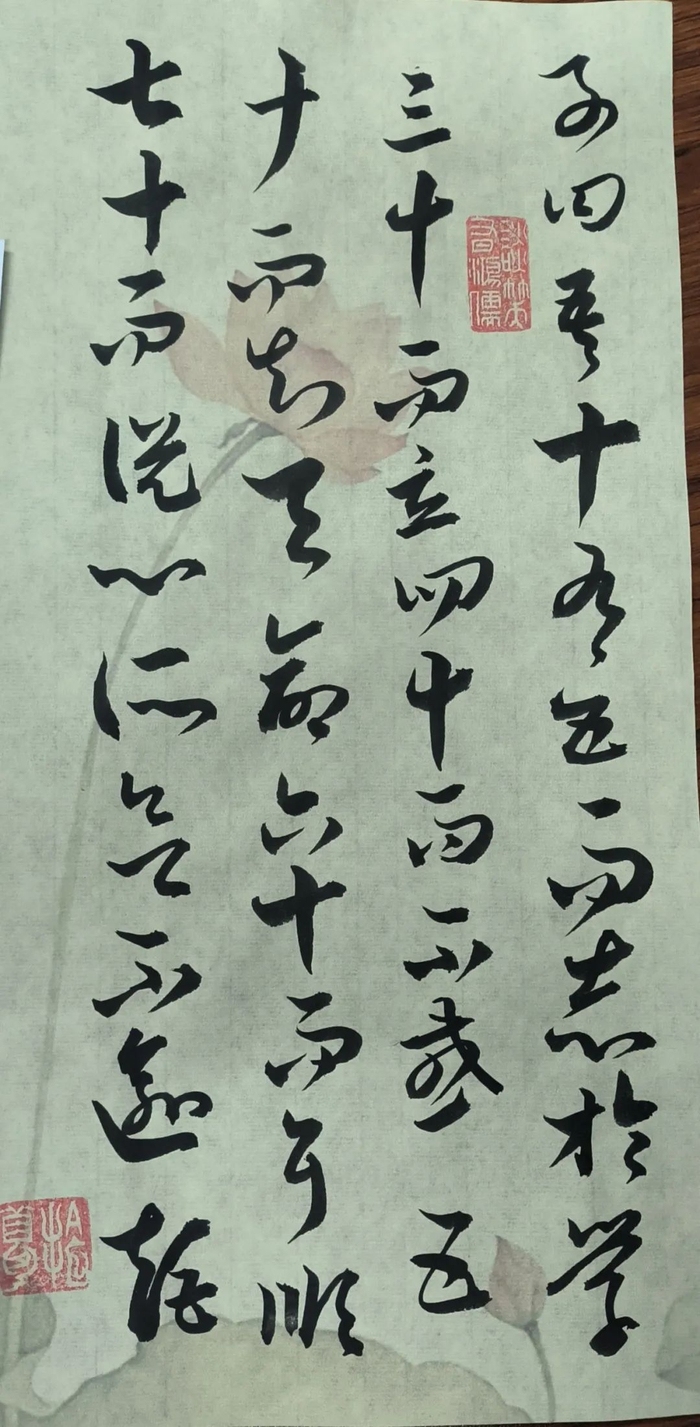 子曰吾十有五而志於学
三十而立四十而不惑五
十而知天命六十而耳順
七十而従心所欲不逾矩